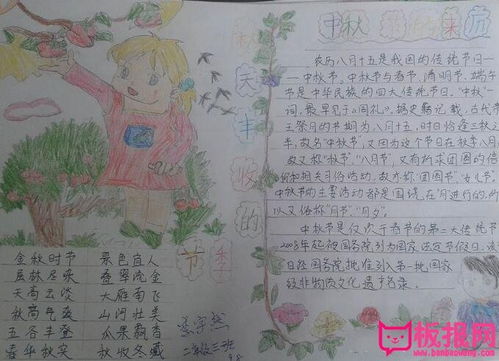 秋天丰收的
季节
金秋时节 景色宜人
层林尽染 叠翠流金
天高云淡 大雁南飞
秋高气爽 山河壮美
五谷丰登 瓜果飘香
春华秋实 秋收冬藏
三班
中秋 的来历
农历八月十五是我国的传统节日—
—中秋节。中秋节与春节、清明节、端午
节是中华民族的四大传统节日。"中秋"一
词,最早见于《周礼》。据史籍记载,古代帝
王祭月的节期为八月十五,时日恰逢三秋之
半,故名"中秋节";又因为这个节日在秋季八月,
故又称"秋节"、"八月节";又有祈求团圆的信
仰和相关习俗活动,故亦称"团圆节"、"女儿节"。
中秋节的主要活动都是围绕"月"进行的,所
以又俗称"月节"、"月夕"。
中秋节是仅次于春节的第二大传统节
2008年起被国务院列为国家法定节假日。
日经国务院批准列入第一批国家
级非物质文化遗产名录。
板报网
www.banbaowang.com